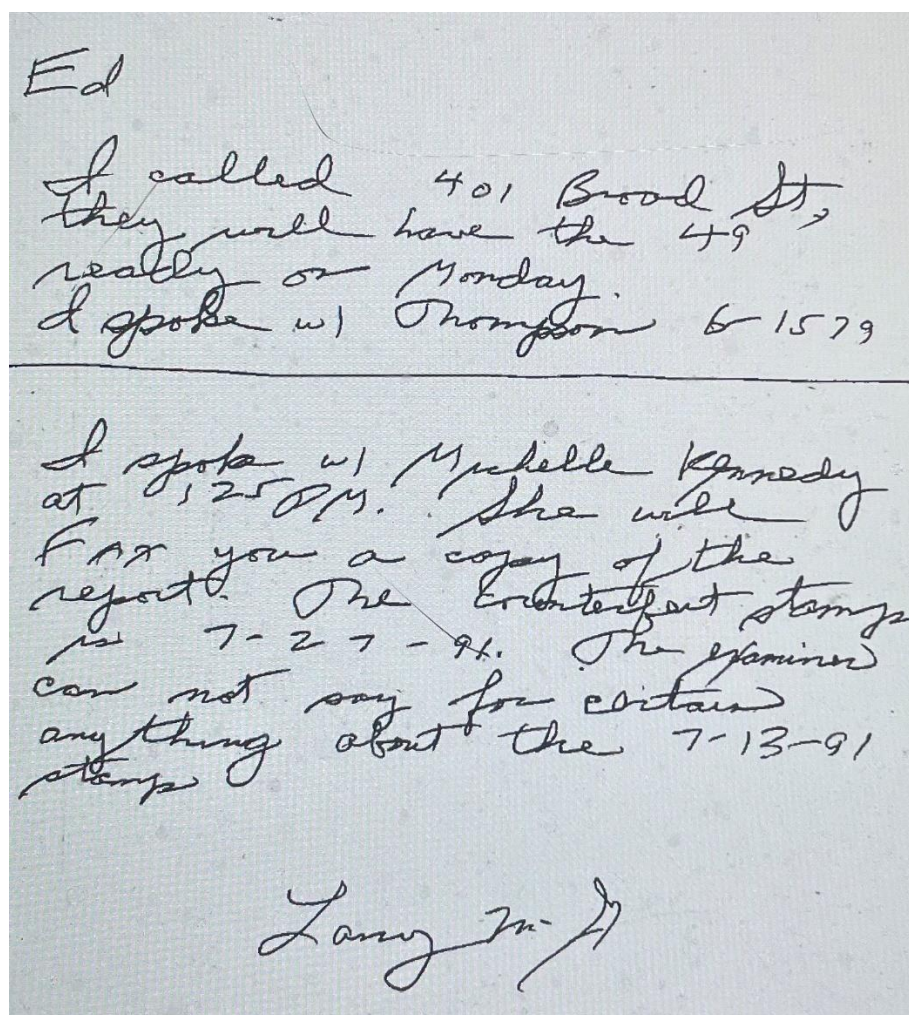 Ed
I called 401 Broad St,
they will have the 49
ready on Monday.
I spoke w/ Thompson 6-1579
I spoke w/ Michelle Kennedy
at 125 PM. She will
FAX you a copy of the
report. The counterfeit stamp
is 7-27-91. The examiner
can not say for certain
anything about the 7-13-91
stamp